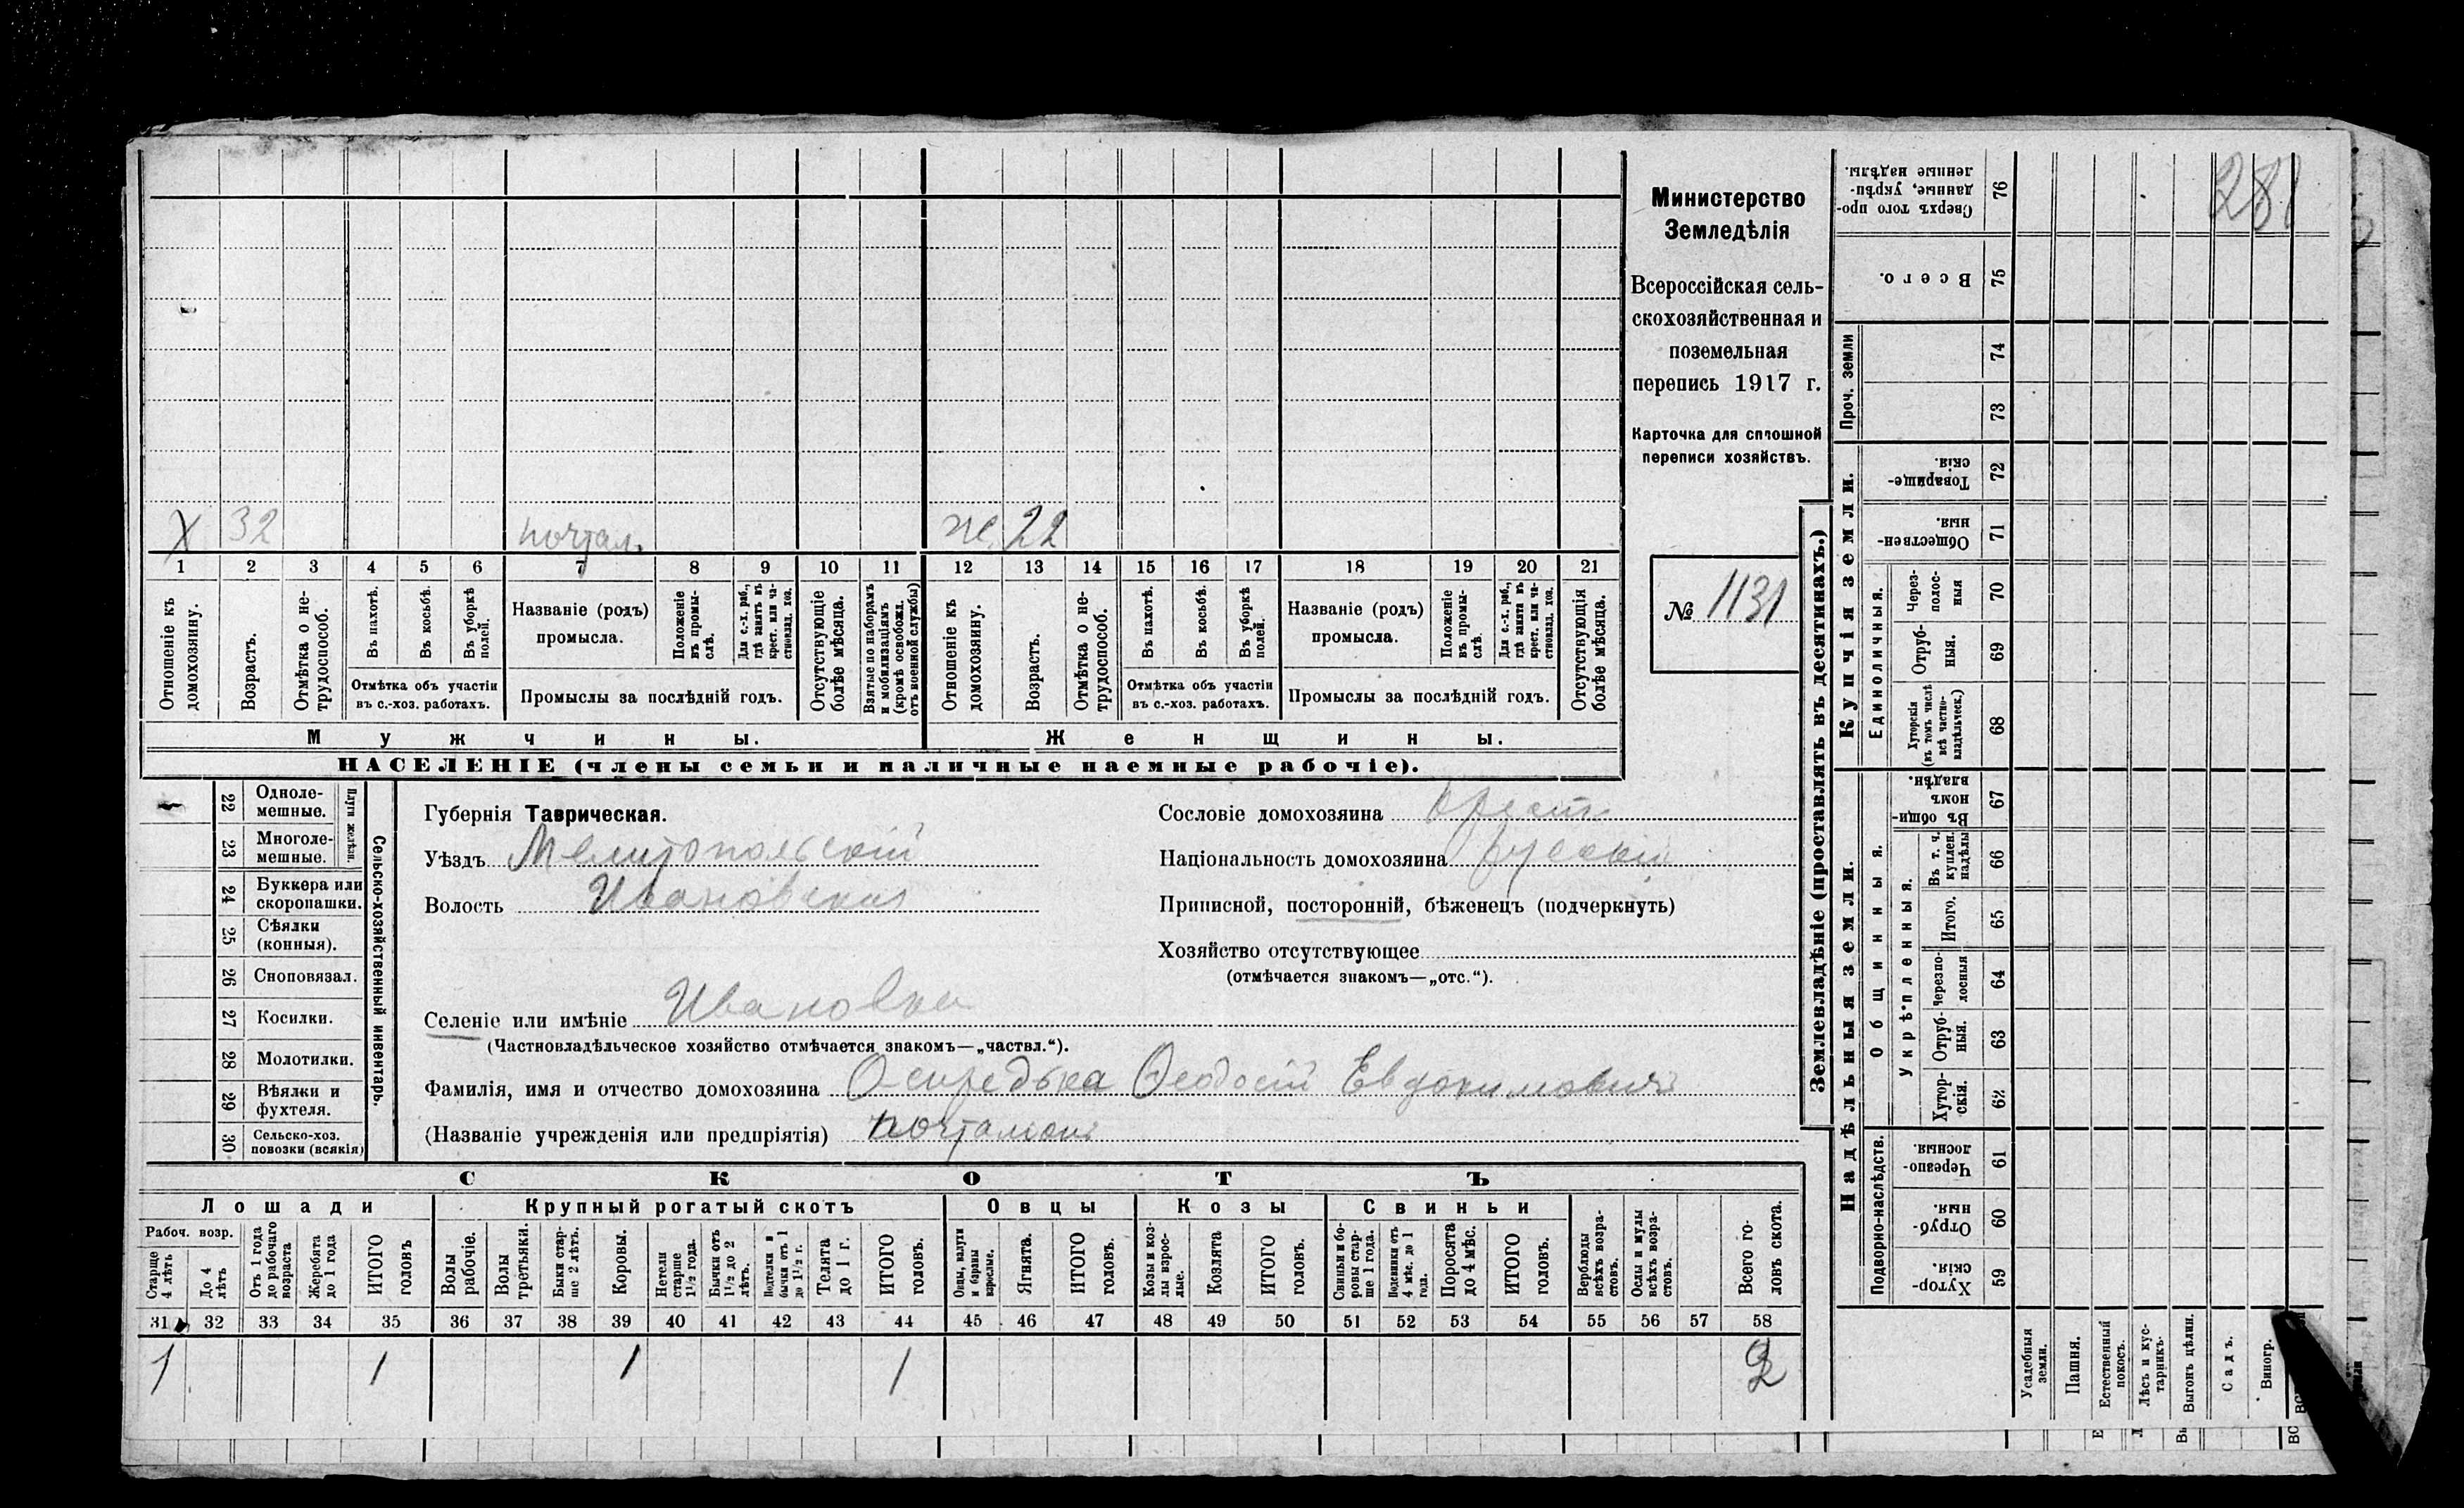 Х 32 почтал. ж. 22
1 2 3 4 5 6 7 8 9 10 11 12 13 14 15 16 17 18 19 20 21
Отношеніе къ домохозяину.
Возрастъ.
Отмѣтка о не-трудоспособ.
Въ пахотѣ.
Въ косьбѣ.
Въ уборкѣ полей.
Отмѣтка объ участіи
въ с.-хоз. работахъ.
Названіе (родъ)
промысла.
Положеніе въ промы-слѣ.
Для с.-х. раб., гдѣ занятъ въ крест. или ча-стновлад. хоз.
Промыслы за послѣдній годъ.
Отсутствующіе болѣе мѣсяца.
Взятые по наборамъ и мобилизаціямъ (кромѣ освобожд. отъ военной службы)
Отношеніе къ домохозяину.
Возрастъ.
Отмѣтка о не-трудоспособ.
Въ пахотѣ.
Въ косьбѣ.
Въ уборкѣ полей.
Отмѣтка объ участіи
въ с.-хоз. работахъ.
Названіе (родъ)
промысла.
Положеніе въ промы-слѣ.
Для с.-х. раб., гдѣ занята въ крест. или ча-стновлад. хоз.
Промыслы за послѣдній годъ.
Отсутствующія болѣе мѣсяца.
Мужчины. Женщины.
НАСЕЛЕНІЕ (члены семьи и наличные наемные рабочіе).
Министерство
Земледѣлія
Всероссійская сель-
скохозяйственная и
поземельная
перепись 1917 г.
Карточка для сплошной
переписи хозяйствъ.
№ 1131
22 Однолемешные.
23 Многолемешные.
Плуги желѣзн.
24 Буккера или скоропашки.
25 Сѣялки (конныя).
26 Сноповязал.
27 Косилки.
28 Молотилки.
29 Вѣялки и фухтеля.
30 Сельско-хоз. повозки (всякія)
Сельско-хозяйственный инвентарь.
Губернія Таврическая.
Уѣздъ Мелитопольскій
Волость Ивановская
Сословіе домохозяина крест.
Національность домохозяина русскій
Приписной, посторонній, бѣженецъ (подчеркнуть)
Хозяйство отсутствующее
(отмѣчается знакомъ—„отс.“).
Селеніе или имѣніе Ивановка
(Частновладѣльческое хозяйство отмѣчается знакомъ—„частвл.“).
Фамилія, имя и отчество домохозяина Осередька Ѳеодосій Евдокимовичъ
(Названіе учрежденія или предпріятія) почталіонъ
СКОТЪ
Лошади Крупный рогатый скотъ Овцы Козы Свиньи
Рабоч. возр.
Старше 4 лѣтъ
До 4 лѣтъ
Отъ 1 года до рабочаго возраста
Жеребята до 1 года
ИТОГО головъ
Волы рабочіе.
Волы третьяки.
Быки стар-ше 2 лѣтъ.
Коровы.
Нетели старше 1½ года.
Бычки отъ 1½ до 2 лѣтъ.
Подтелки и бычки отъ 1 до 1½ г.
Телята до 1 г.
ИТОГО головъ.
Овцы, валухи и бараны взрослые.
Ягнята.
ИТОГО головъ.
Козы и коз-лы взрос-лые.
Козлята
ИТОГО головъ.
Свиньи и бо-ровы стар-ше 1 года.
Подсвинки отъ 4 мѣс. до 1 года.
Поросята до 4 мѣс.
ИТОГО головъ.
Верблюды всѣхъ возра-стовъ.
Ослы и мулы всѣхъ возра-стовъ.
Всего го-ловъ скота.
31 32 33 34 35 36 37 38 39 40 41 42 43 44 45 46 47 48 49 50 51 52 53 54 55 56 57 58
1 1 1 1 2
Землевладѣніе (проставлять въ десятинахъ.)
281
Сверхъ того про-данные, укрѣп-ленные надѣлы. 76
Всего. 75
Проч. земли 74
73
Купчія земли.
Товарище-скія. 72
Обществен-ныя. 71
Единоличныя.
Через-полос-ныя 70
Отруб-ныя. 69
Хуторскія (въ томъ числѣ всѣ частно-владѣльческ.) 68
Надѣльныя земли.
Общинныя.
Въ общин-номъ владѣн. 67
Укрѣпленныя.
Въ т. ч. куплен. надѣлы 66
Итого. 65
Черезпо-лосныя 64
Отруб-ныя. 63
Хутор-скія. 62
Подворно-наслѣдств.
Черезпо-лосныя. 61
Отруб-ныя. 60
Хутор-скія. 59
Усадебныя земли.
Пашня.
Естественный покосъ.
Лѣсъ и кус-тарникъ.
Выгонъ цѣлин.
Садъ.
Виногр.